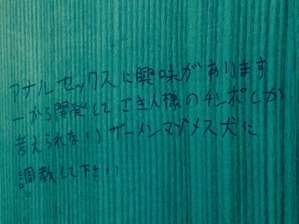 アナルセックスに興味があります
一から開発してご主人様のチンポしか
考えられないザーメンマゾメス犬に
調教して下さい